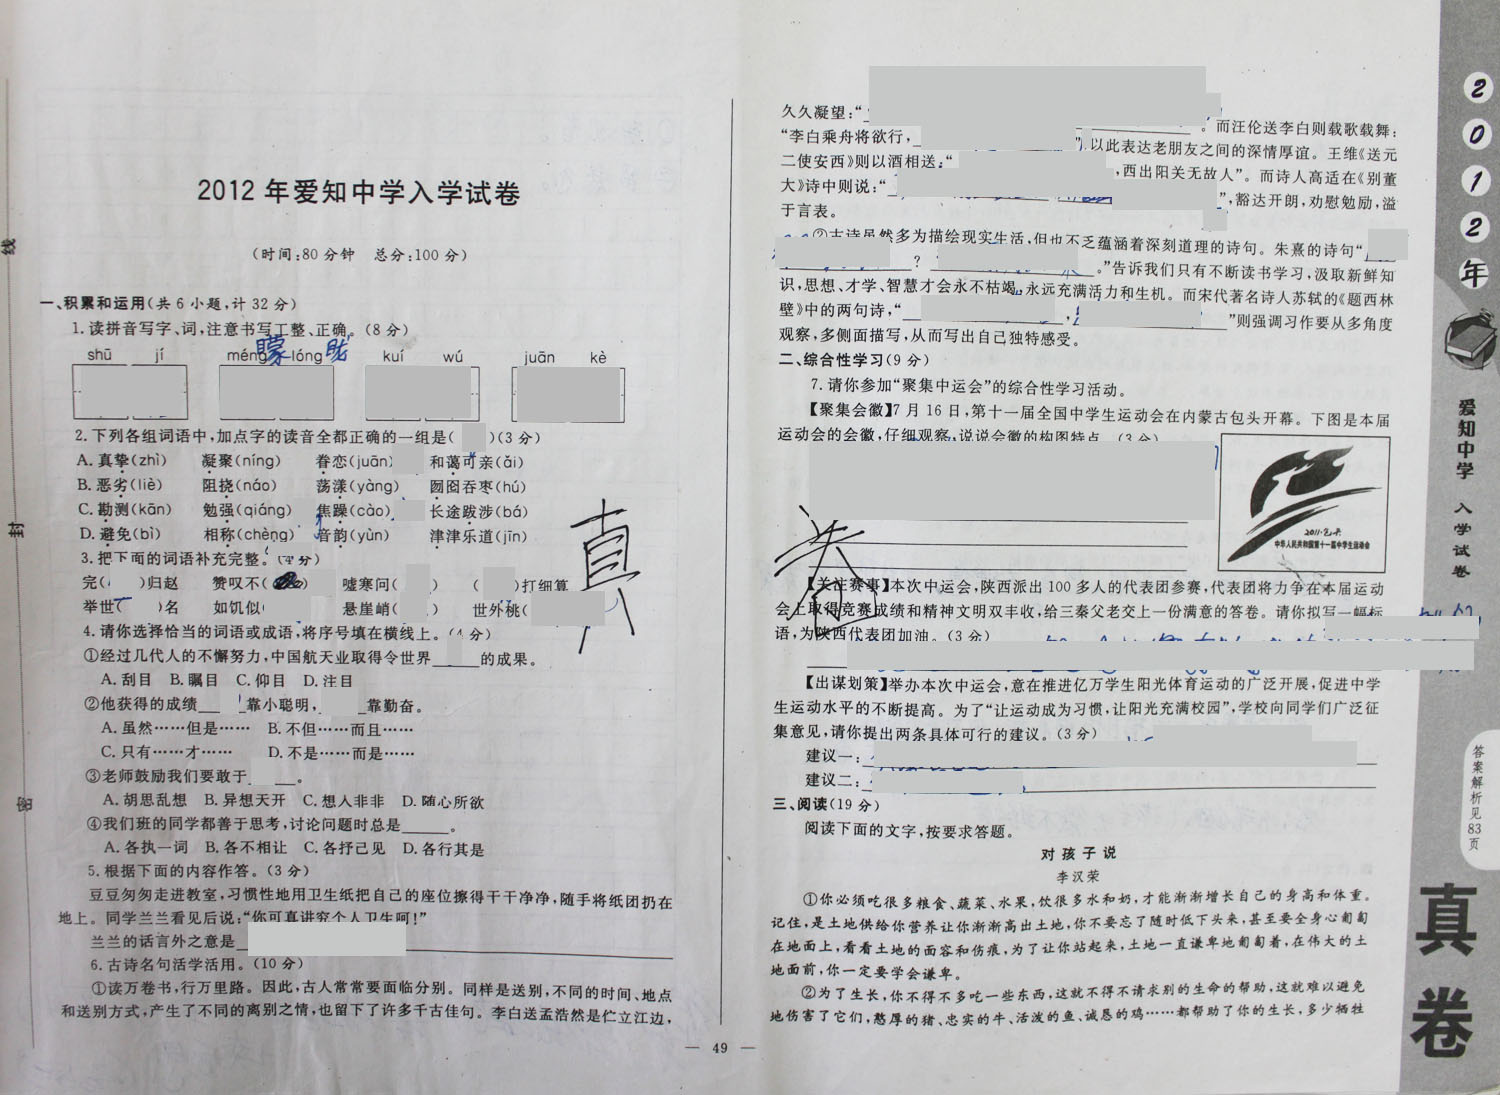 2012年爱知中学入学试卷
(时间:80分钟 总分:100分)
一、积累和运用(共6小题,计32分)
1.读拼音写字、词,注意书写工整、正确。(8分)
shū jí méng lóng kuí wú juān kè
朦 胧
2.下列各组词语中,加点字的读音全都正确的一组是( )(3分)
A.真挚(zhì) 凝聚(níng) 眷恋(juān) 和蔼可亲(ǎi)
B.恶劣(liè) 阻挠(náo) 荡漾(yàng) 囫囵吞枣(hú)
C.勘测(kān) 勉强(qiáng) 焦躁(cào) 长途跋涉(bá)
D.避免(bì) 相称(chèng) 音韵(yùn) 津津乐道(jīn)
3.把下面的词语补充完整。(4分)
完( )归赵 赞叹不( ) 嘘寒问( ) ( )打细算
举世( )名 如饥似( 悬崖峭( ) 世外桃(
4.请你选择恰当的词语或成语,将序号填在横线上。(4分)
①经过几代人的不懈努力,中国航天业取得令世界______的成果。
A.刮目 B.瞩目 C.仰目 D.注目
②他获得的成绩____靠小聪明,____靠勤奋。
A.虽然……但是…… B.不但……而且……
C.只有……才…… D.不是……而是……
③老师鼓励我们要敢于______。
A.胡思乱想 B.异想天开 C.想人非非 D.随心所欲
④我们班的同学都善于思考,讨论问题时总是______。
A.各执一词 B.各不相让 C.各抒己见 D.各行其是
5.根据下面的内容作答。(3分)
豆豆匆匆走进教室,习惯性地用卫生纸把自己的座位擦得干干净净,随手将纸团扔在
地上。同学兰兰看见后说:“你可真讲究个人卫生啊!”
兰兰的话言外之意是
6.古诗名句活学活用。(10分)
①读万卷书,行万里路。因此,古人常常要面临分别。同样是送别,不同的时间、地点
和送别方式,产生了不同的离别之情,也留下了许多千古佳句。李白送孟浩然是伫立江边,
— 49 —
久久凝望:“ 。而汪伦送李白则载歌载舞:
“李白乘舟将欲行, ”,以此表达老朋友之间的深情厚谊。王维《送元
二使安西》则以酒相送:“ ,西出阳关无故人”。而诗人高适在《别董
大》诗中则说:“ ”,豁达开朗,劝慰勉励,溢
于言表。
②古诗虽然多为描绘现实生活,但也不乏蕴涵着深刻道理的诗句。朱熹的诗句“
? 。”告诉我们只有不断读书学习,汲取新鲜知
识,思想、才学、智慧才会永不枯竭,永远充满活力和生机。而宋代著名诗人苏轼的《题西林
壁》中的两句诗,“ , ”则强调习作要从多角度
观察,多侧面描写,从而写出自己独特感受。
二、综合性学习(9分)
7.请你参加“聚集中运会”的综合性学习活动。
【聚集会徽】7月16日,第十一届全国中学生运动会在内蒙古包头开幕。下图是本届
运动会的会徽,仔细观察,说说会徽的构图特点。(3分)
2011·包头
中华人民共和国第十一届中学生运动会
【关注赛事】本次中运会,陕西派出100多人的代表团参赛,代表团将力争在本届运动
会上取得竞赛成绩和精神文明双丰收,给三秦父老交上一份满意的答卷。请你拟写一幅标
语,为陕西代表团加油。(3分)
【出谋划策】举办本次中运会,意在推进亿万学生阳光体育运动的广泛开展,促进中学
生运动水平的不断提高。为了“让运动成为习惯,让阳光充满校园”,学校向同学们广泛征
集意见,请你提出两条具体可行的建议。(3分)
建议一:
建议二:
三、阅读(19分)
阅读下面的文字,按要求答题。
对孩子说
李汉荣
①你必须吃很多粮食、蔬菜、水果,饮很多水和奶,才能渐渐增长自己的身高和体重。
记住,是土地供给你营养让你渐渐高出土地,你不要忘了随时低下头来,甚至要全身心匍匐
在地面上,看看土地的面容和伤痕,为了让你站起来,土地一直谦卑地匍匐着,在伟大的土
地面前,你一定要学会谦卑。
②为了生长,你不得不多吃一些东西,这就不得不请求别的生命的帮助,这就难以避免
地伤害了它们,憨厚的猪、忠实的牛、活泼的鱼、诚恳的鸡……都帮助了你的生长,多少牺牲
线
封
密
真
卷
2012年
爱知中学 入学试卷
答案解析见83页
真卷